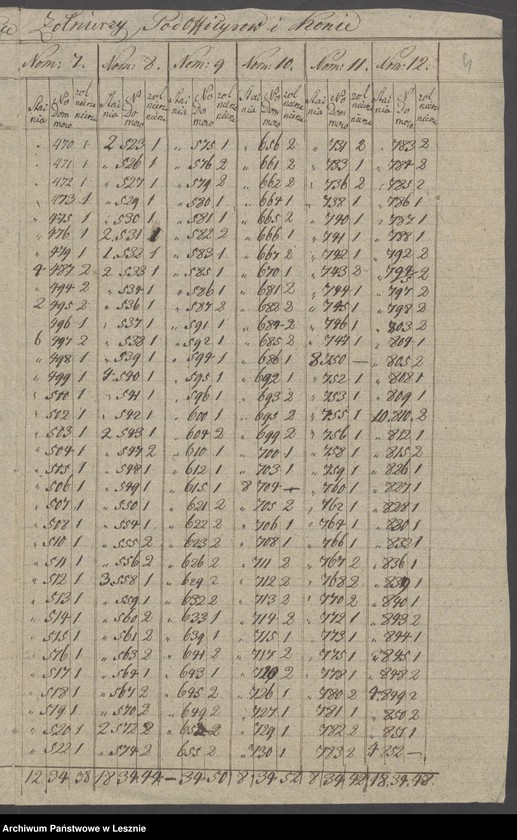 Żołnierzy, PodOfficyrow i Konie
Nom: 7. Nom: 8. Nom: 9 Nom: 10. Nom: 11. Nom: 12.
" 470 1 2 523 1 " 575 1 " 656 2 " 731 2 " 783 2
" 471 1 " 526 1 " 576 2 " 661 2 " 733 1 " 784 2
" 472 1 " 527 1 " 579 2 " 662 2 " 736 2 " 785 2
" 473 1 " 529 1 " 580 1 " 664 1 " 738 1 " 786 1
" 475 1 " 530 1 " 581 1 " 665 2 " 740 1 " 787 1
" 476 1 2 531 1 " 582 2 " 666 1 " 741 1 " 788 1
" 479 1 1 532 1 " 583 1 " 667 2 " 742 1 " 792 2
4 487 2 2 533 1 " 585 1 " 670 1 " 743 2 " 795 2
" 494 2 " 534 1 " 586 1 " 681 2 " 744 1 " 797 2
2 495 2 " 536 1 " 587 2 " 682 2 " 745 1 " 798 2
" 496 1 " 537 1 " 591 1 " 684 2 " 746 1 " 803 2
6 497 2 " 538 1 " 592 1 " 685 2 " 744 1 " 804 1
" 498 1 " 539 1 " 594 1 " 686 1 8 750 — " 805 2
" 499 1 4 540 1 " 595 1 " 692 1 " 752 1 " 808 1
" 500 1 " 541 1 " 596 1 " 693 2 " 753 1 " 809 1
" 502 1 " 542 1 " 600 1 " 695 2 " 755 1 10 210 2
" 503 1 2 543 1 " 604 2 " 699 2 " 756 1 " 812 1
" 504 1 " 547 2 " 610 1 " 700 1 " 758 1 " 815 2
" 505 1 " 548 1 " 612 1 " 703 1 " 759 1 " 826 1
" 506 1 " 549 1 " 615 1 8 704 — " 760 1 " 827 1
" 507 1 " 550 1 " 621 2 " 705 2 " 762 1 " 828 1
" 508 1 " 554 1 " 622 2 " 706 1 " 764 1 " 830 1
" 510 1 " 555 2 " 623 2 " 708 1 " 766 1 " 832 1
" 511 1 " 556 2 " 626 2 " 711 2 " 767 2 " 836 1
" 512 1 3 558 1 " 629 2 " 712 2 " 768 2 " 839 1
" 513 1 " 559 1 " 632 2 " 713 2 " 770 2 " 840 1
" 514 1 " 560 2 " 633 1 " 714 2 " 772 1 " 843 2
" 515 1 " 561 2 " 639 1 " 715 1 " 773 1 " 844 1
" 576 1 " 563 2 " 641 2 " 717 2 " 775 1 " 845 1
" 517 1 " 564 1 " 643 1 " 720 2 " 778 1 " 848 2
" 518 1 " 567 2 " 645 2 " 726 1 " 780 2 4 849 2
" 519 1 " 570 2 " 649 2 " 727 1 " 781 1 " 850 2
" 520 1 2 572 2 " 652 2 " 729 1 " 782 2 " 851 1
" 522 1 " 574 2 " 655 2 " 730 1 " 783 2 4 852 —
12 34 38 18 34 44 — 34 50 8 34 52 8 34 42 18 34 48
Archiwum Państwowe w Lesznie